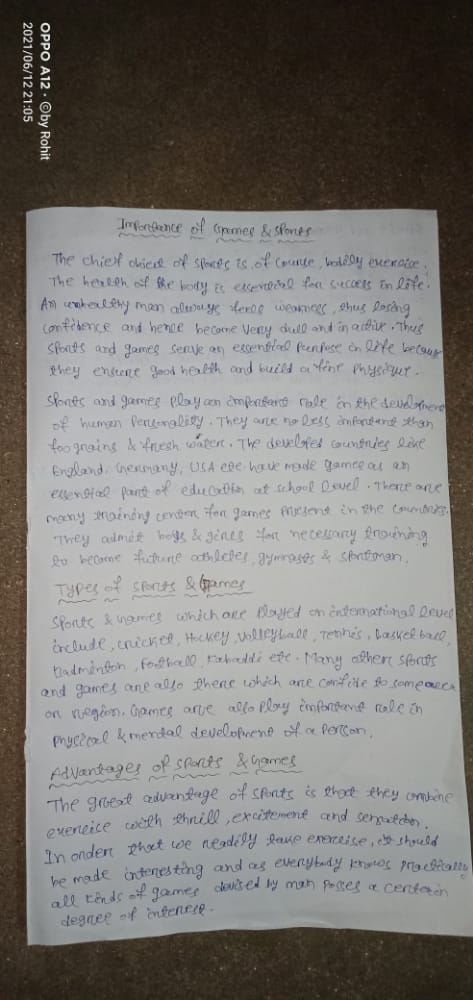 OPPO A12 · ©by Rohit
2021/06/12 21:05
Importance of Games & Sports
The chief object of sports is, of course, bodily exercise.
The health of the body is essential for success in life.
An unhealthy man always feels weakness, thus losing
confidence and hence become very dull and in active. Thus
sports and games serve an essential purpose in life because
they ensure good health and build a fine physique.
Sports and games play an important role in the development
of human personality. They are no less important than
foograins & fresh water. The developed countries like
England, Germany, USA etc have made games as an
essential part of education at school level. There are
many training center for games present in the countries.
They admit boys & girls for necessary training
to become future athletes, gymnasts & sportman.
Types of sports & Games
Sports & Games which are played on international level
include, cricket, Hockey, Volleyball, Tennis, basketball,
Badminton, Football, Kabaddi etc. Many other sports
and games are also there which are confite to some area
or region. Games are also play important role in
physical & mental development of a person.
Advantages of sports & Games
The great advantage of sports is that they combine
exercise with thrill, excitement and
In order that we readily take exercise, it should
be made interesting and as everybody knows practically
all kinds of games devised by man posses a certain
degree of interest.